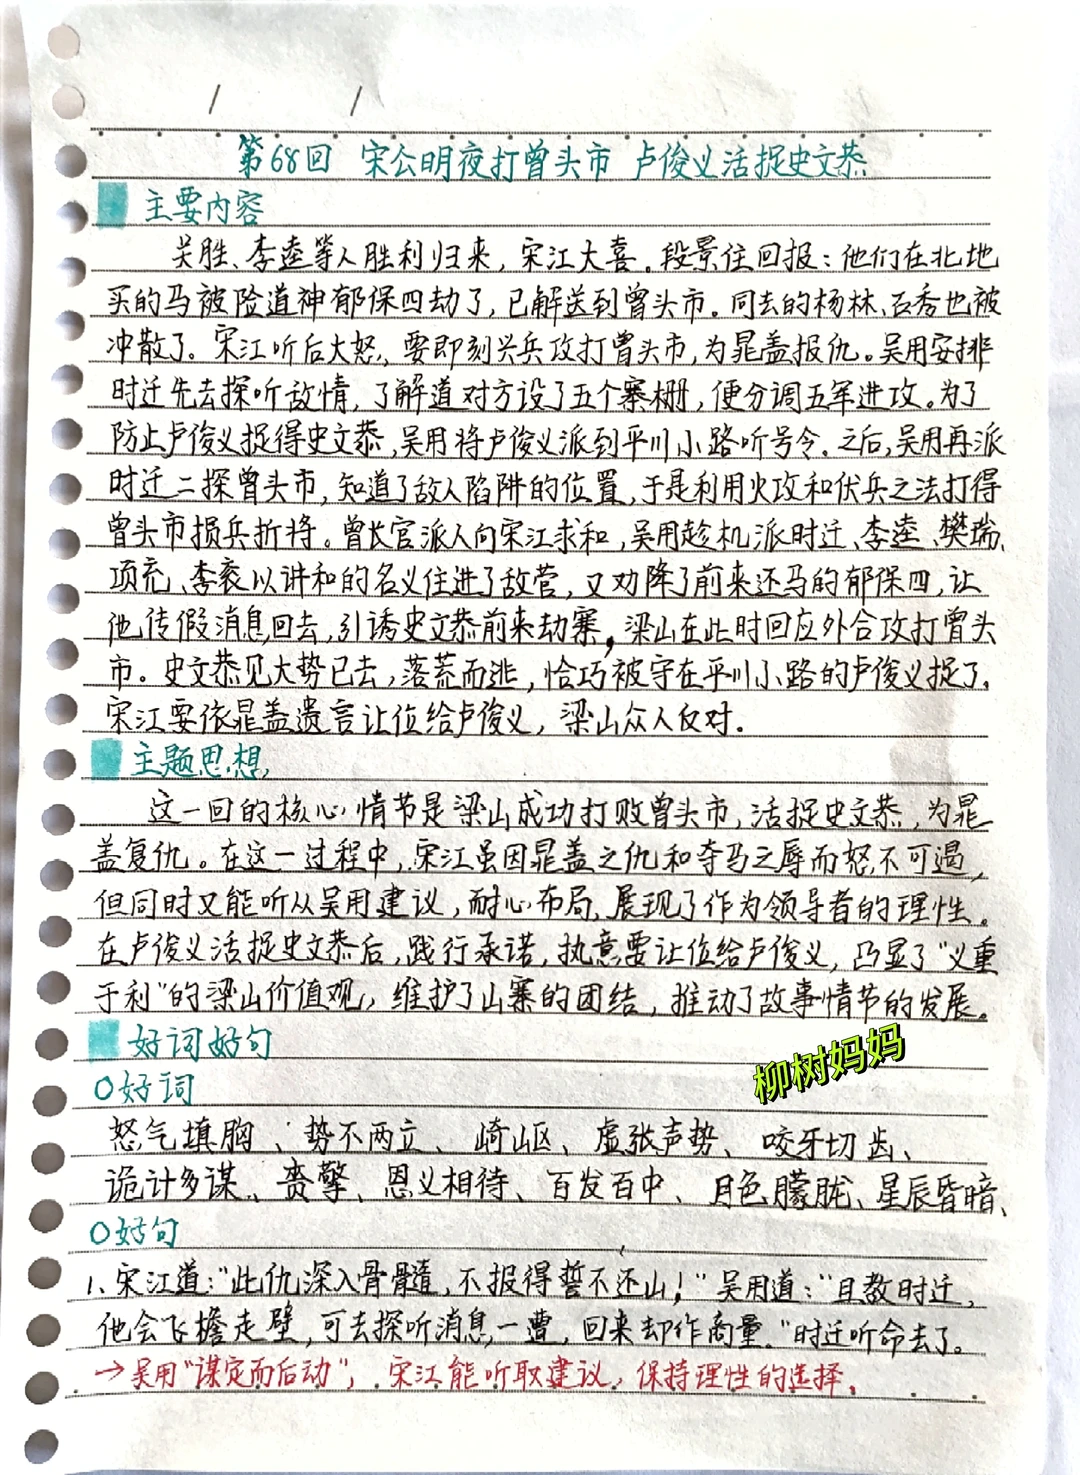 第68回 宋公明夜打曾头市 卢俊义活捉史文恭
主要内容
吴胜、李逵等人胜利归来，宋江大喜。段景住回报：他们在北地
买的马被险道神郁保四劫了，已解送到曾头市。同去的杨林、石秀也被
冲散了。宋江听后大怒，要即刻兴兵攻打曾头市，为晁盖报仇。吴用安排
时迁先去探听敌情，了解道对方设了五个寨栅，便分调五军进攻。为了
防止卢俊义捉得史文恭，吴用将卢俊义派到平川小路听号令。之后，吴用再派
时迁二探曾头市，知道了敌人陷阱的位置，于是利用火攻和伏兵之法打得
曾头市损兵折将。曾长官派人向宋江求和，吴用趁机派时迁、李逵、樊瑞、
项充、李衮以讲和的名义住进了敌营，又劝降了前来还马的郁保四，让
他传假消息回去，引诱史文恭前来劫寨，梁山在此时回应外合攻打曾头
市。史文恭见大势已去，落荒而逃，恰巧被守在平川小路的卢俊义捉了。
宋江要依晁盖遗言让位给卢俊义，梁山众人反对。
主题思想
这一回的核心情节是梁山成功打败曾头市，活捉史文恭，为晁
盖复仇。在这一过程中，宋江虽因晁盖之仇和夺马之辱而怒不可遏，
但同时又能听从吴用建议，耐心布局，展现了作为领导者的理性。
在卢俊义活捉史文恭后，践行承诺，执意要让位给卢俊义，凸显了“义重
于利”的梁山价值观，维护了山寨的团结，推动了故事情节的发展。
好词好句
柳树妈妈
○好词
怒气填胸、势不两立、崎岖、虚张声势、咬牙切齿、
诡计多谋、赍擎、恩义相待、百发百中、月色朦胧、星辰昏暗、
○好句
1、宋江道：“此仇深入骨髓，不报得誓不还山！”吴用道：“且教时迁，
他会飞檐走壁，可去探听消息一遭，回来却作商量。”时迁听命去了。
→吴用“谋定而后动”，宋江能听取建议，保持理性的选择。